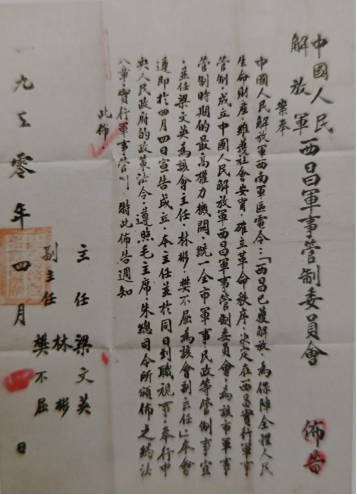 中國人民
解放軍西昌軍事管制委員會 佈告
案奉
中國人民解放軍西南軍區電令：「西昌已獲解放，為保障全體人民
生命財產，維護社會安寧，確立革命秩序，決定在西昌實行軍事
管制，成立中國人民解放軍西昌軍事管制委員會，為該市軍事
管制時期的最高權力機關，統一全市軍事民政等管制事宜
，並任梁文英為該會主任，林彬、樊不屈為該會副主任」本會
遵即於四月四日宣告成立，本主任並於同日到職視事，奉行中
央人民政府的政策法令，遵照毛主席、朱總司令所頒佈之約法
八章實行軍事管制 特此佈告週知
此佈
主任 梁文英
副主任 林彬
樊不屈
一九五零年四月 日